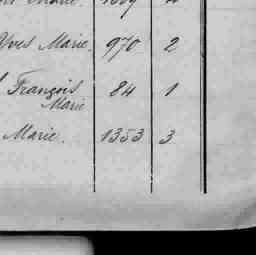 Yves Marie. 970 2
François 84 1
Marie
Marie. 1353 3